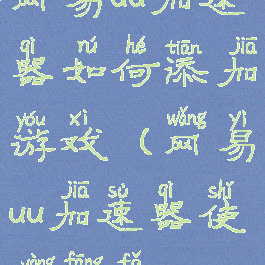 网易uu加速
qì nú hé tiān jiā
器如何添加
yóu xì wǎng yì
游戏（网易
jiā sù qì shǐ
uu加速器使
yòng fāng fǎ